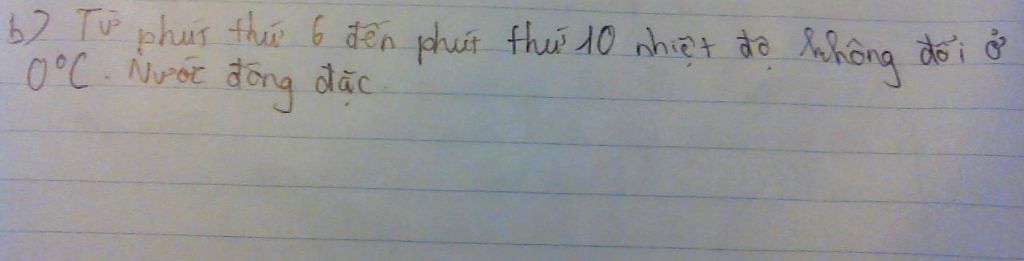 b) Từ phút thứ 6 đến phút thứ 10 nhiệt độ không đổi ở
0°C. Nước đông đặc